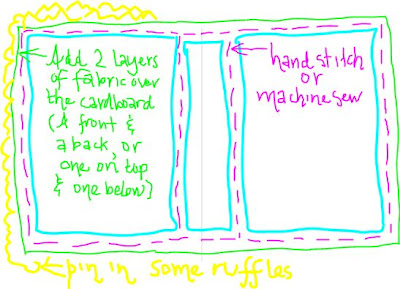 Add 2 layers
of fabric over
the cardboard
(A front &
a back, or
one on top
& one below)
hand stitch
or
machine sew
pin in some ruffles